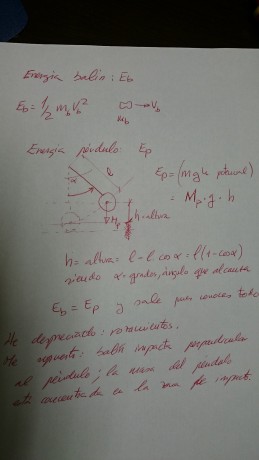 Energía balín: Eb
Eb = 1/2 mb Vb²
Vb
mb
Energía péndulo: Ep
l
α
Mp
h = altura
Ep = (mgh potencial)
= Mp · g · h
h = altura = l - l cos α = l (1 - cos α)
siendo α = grados, ángulo que alcanza
Eb = Ep y sale pues conoces todo
He despreciado: rozamientos.
He supuesto: balín impacta perpendicular
al péndulo; la masa del péndulo
está concentrada en la zona de impacto.